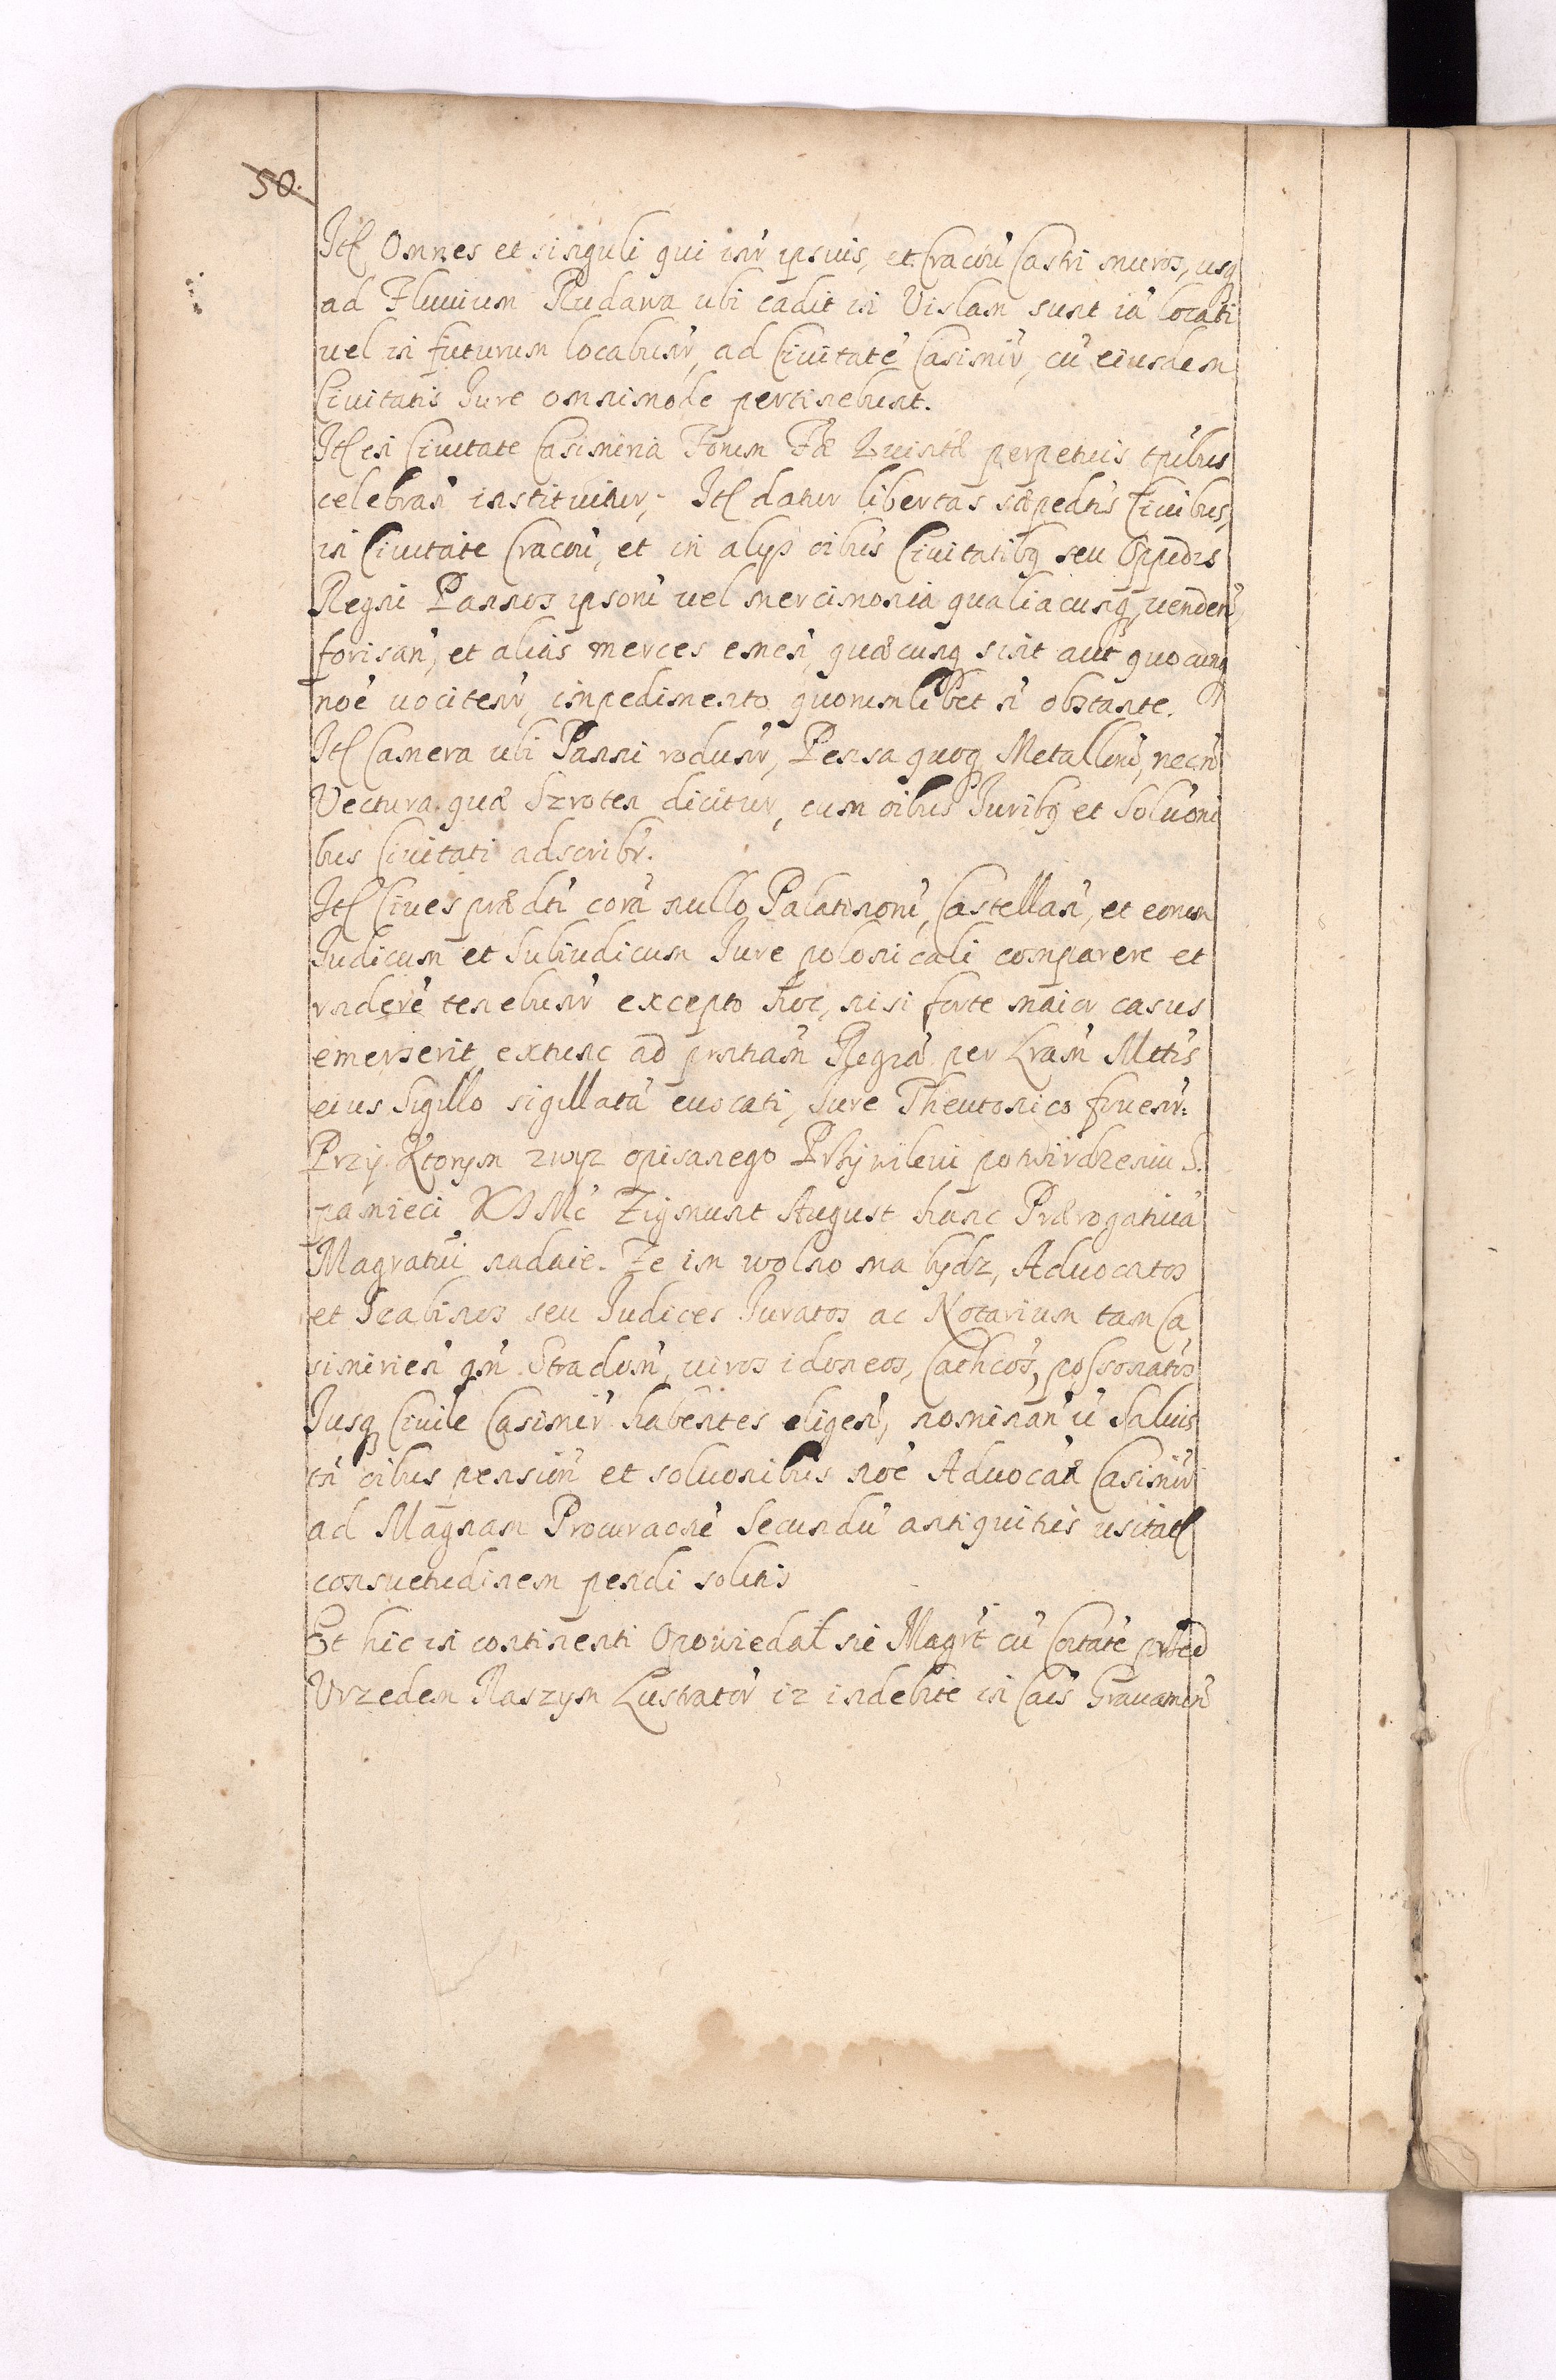 50.
Itẽ Omnes et singuli qui inr̃ ipsius, et Cracoũ Castri muros, usq
ad Fluuium Rudawa ubi cadit in Vislam sunt iã locati
uel in futurum locabunr̃, ad Ciuitatẽ Casimir̃, cũ eiusdem
Ciuitatis Iure omnimode pertinebunt.
Itẽ in Ciuitate Casimiria Forum Fæ Quintæ perpetuis tpĩbus
celebrañ instituitur, Itẽ datur libertas sæpedtis Ciuibus,
in Ciuitate Cracoũ, et in alys oibus Ciuitatibq seu Oppidis
Regni Pannos ipsorũ uel mercimonia qualiacunq, uendeñ,
forisañ, et alias merces emeñ, quæcunq sint aut quocunq
noẽ uocitenr̃, impedimento quorumlibet ñ obstante.
Itẽ Camera ubi Panni rodunr̃, Pensa quoq Metallorũ, necñ
Vectura quæ Szroten dicitur, cum oibus Iuribq et Soluoni
bus Ciuitati adscribr̃.
Itẽ Ciues prædti corã nullo Palatinorũ, Castellañ, et eorum
Iudicum et Subiudicum Iure polonicali comparere et
rnderẽ tenebunr̃ excepto hoc, nisi forte maior casus
emerserit extunc ad prntiam Regiã per Lram Mttis
eius Sigillo sigillatã euocati, Iure Theutonico fruenr̃.
Przy Ktorym zwyz opisanego Przywileiu potwirdzeniu S.
pamieci KJMć Zigmunt August hunc Prærogatiuã
Magratui nadaie. Ze im wolno ma bydz, Aduocatos
et Scabinos seu Iudices Iuratos ac Notarium tam Ca
simirieñ qm̃ Stradom̃, uiros idoneos, Cathcos, possonatos
Iusq Ciuile Casimir̃ habentes eligeñ, nominañ ũ Saluis
tñ oibus pension̄ et soluonibus noẽ Aduocaæ Casimir̃
ad Magnam Procuracnẽ Secundũ antiquitus usitatẽ
consuetudinem pendi solitis
Et hic in continenti Opowiedał sie Magrt cũ Coitate przed
Vrzedem Naszym Lustrator̃ iz indebite in Caiis Grauamiñ